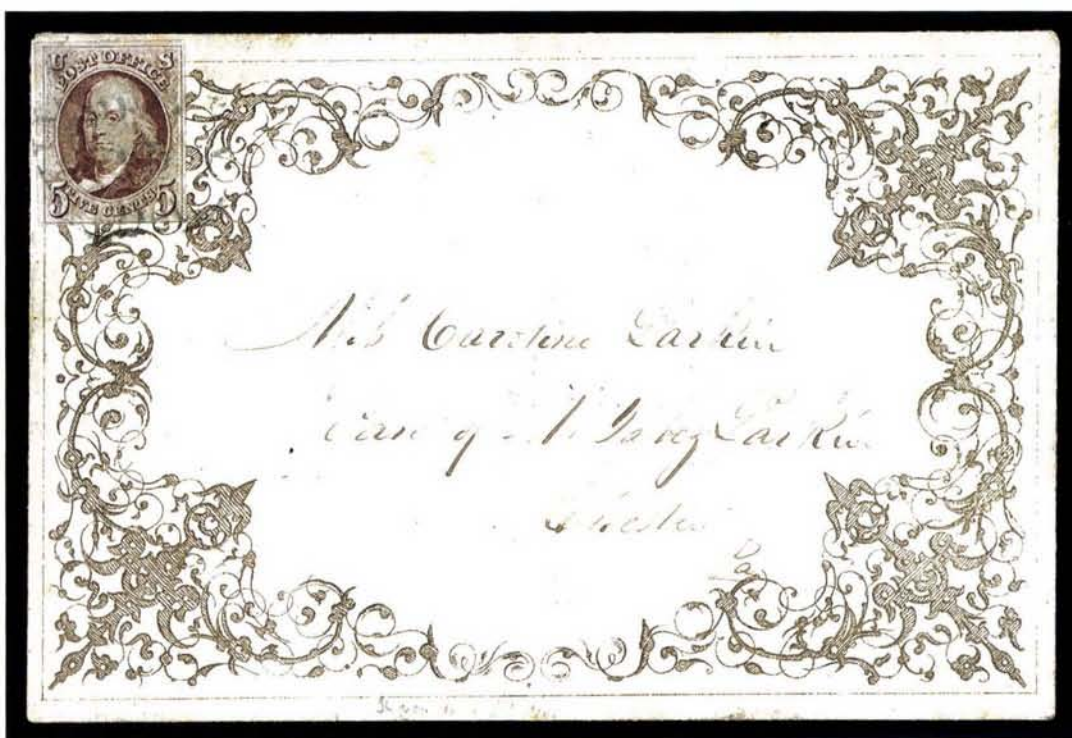 U S
POST OFFICE
5 FIVE CENTS 5
Miss Caroline Larkin
Care of Larkin
Chester
Pa